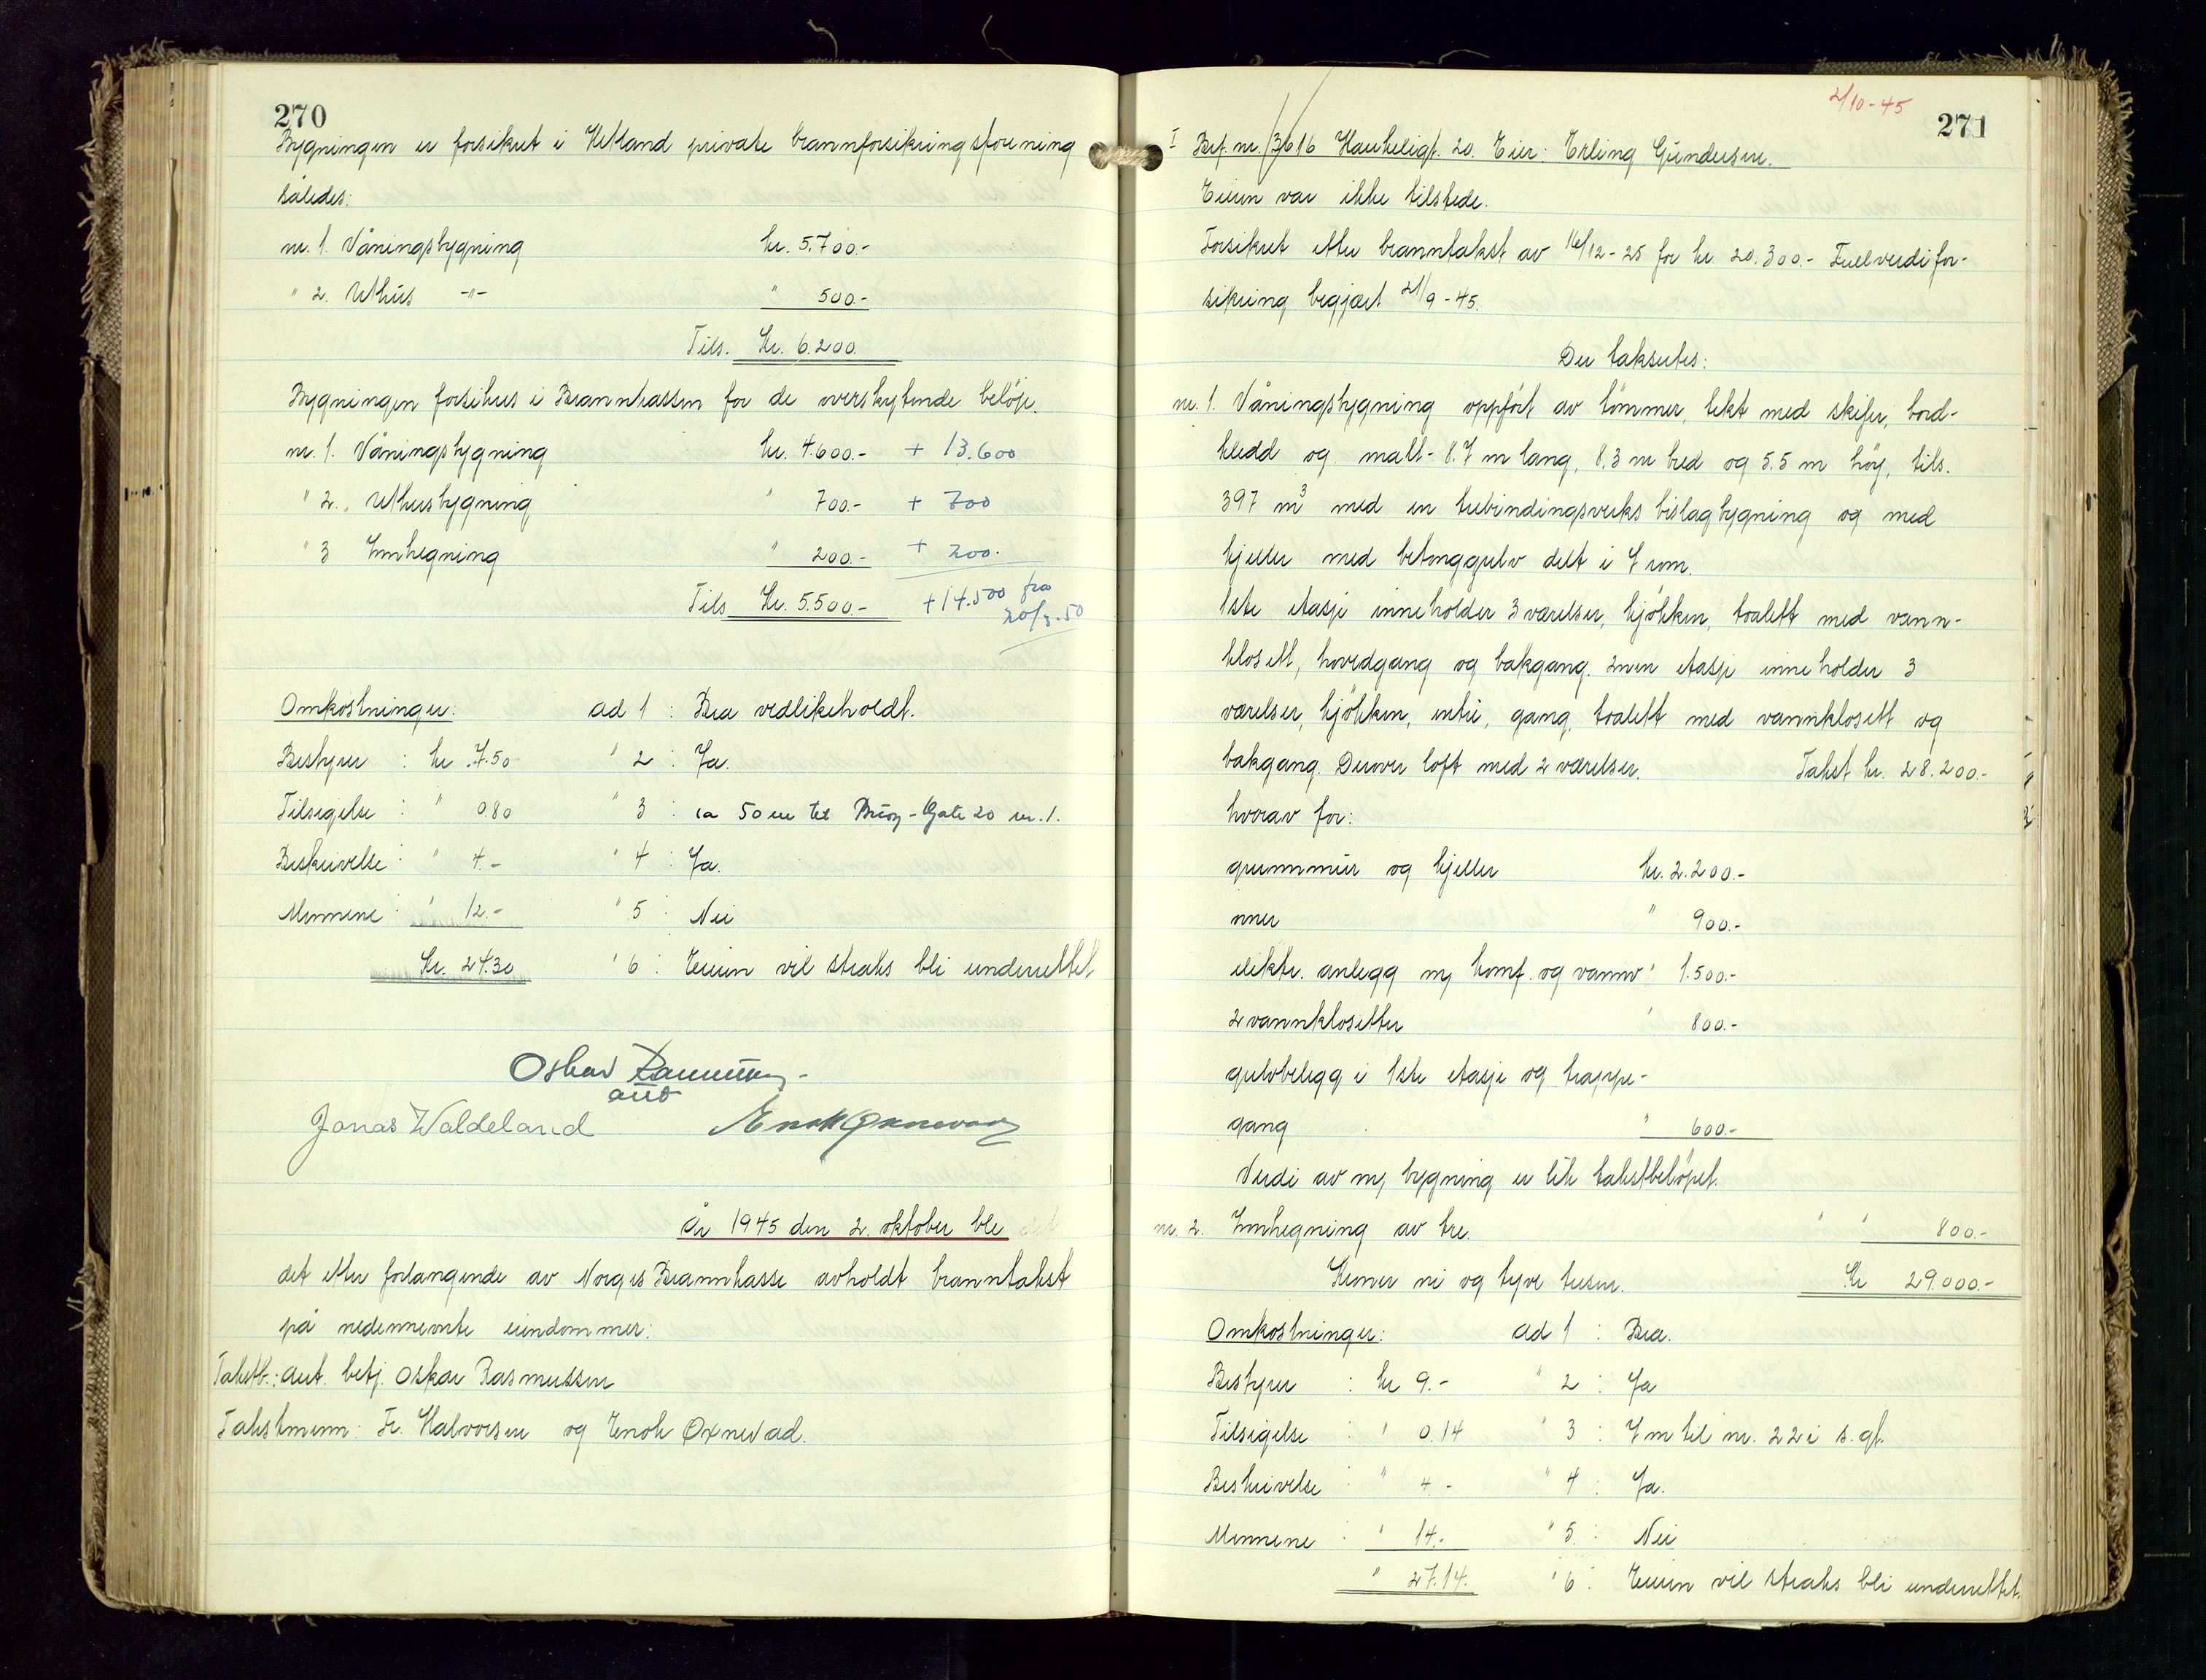 270
Bygningen er forsikret i Hetland private brannforsikringsforening
således:
nr. 1. Våningsbygning kr. 5.700.-
" 2. Uthus -"- " 500.-
Tils. Kr. 6.200.
Bygningen forsikres i Brannkassen for de overskytende beløp.
nr. 1. Våningsbygning kr. 4.600.- + 13.600
" 2. Uthusbygning " 700.- + 700
" 3 Innhegning " 200.- + 200.
Tils Kr. 5.500.- + 14.500 fra
20/3.50
Omkostninger: ad 1 : Bra vedlikeholdt.
Bestyrer : kr. 7.50 " 2 : Ja.
Tilsigelse : " 0.80 " 3 : ca 50 m til Gate 20 nr. 1.
Beskrivelse : " 4.- " 4 : Ja.
Mennene : " 12.- " 5 : Nei
Kr. 24.30 " 6 : Eieren vil straks bli underrettet
Oskar Rasmussen
aut
Jonas Waldeland Enok Oxnevad
År 1945 den 2. oktober ble det
det etter forlangende av Norges Brannkasse avholdt branntakst
på nedennevnte eiendommer:
Takstb.: aut. betj. Oskar Rasmussen
Takstmenn: Fr. Halvorsen og Enok Oxnevad.
2/10-45
271
I Brf. nr. 3616 Haukeligt. 20. Eier: Erling Gundersen.
Eieren var ikke tilstede.
Forsikret etter branntakst av 16/12-25 for kr. 20.300.- Fullverdifor-
sikring begjært 21/9-45.
Der takseres:
nr. 1. Våningsbygning oppført av tømmer, tekt med skifer, bord-
kledd og malt - 8.7 m lang, 8.3 m bred og 5.5 m høy, tils.
397 m³ med en trebindingsverks bislagbygning og med
kjeller med betonggulv delt i 7 rom.
1ste etasje inneholder 3 værelser, kjøkken, toalett med vann-
klosett, hovedgang og bakgang. 2nen etasje inneholder 3
værelser, kjøkken, entré, gang, toalett med vannklosett og
bakgang. Derover loft med 2 værelser. Takst kr. 28.200.-
hvorav for:
grunnmur og kjeller kr. 2.200.-
ovner " 900.-
elektr. anlegg m/ komf. og vannv " 1.500.-
2 vannklosetter " 800.-
gulvbelegg i 1ste etasje og trappe-
gang " 600.-
Verdi av ny bygning er lik takstbeløpet.
nr. 2. Innhegning av tre. " " 800.-
Kroner ni og tyve tusen. Kr 29.000.-
Omkostninger: ad 1 : Bra.
Bestyrer : kr 9.- " 2 : Ja
Tilsigelse : " 0.14 " 3 : 7 m til nr. 22 i s. gt.
Beskrivelse : " 4.- " 4 : Ja.
Mennene : " 14.- " 5 : Nei
" 27.14. " 6 : Eieren vil straks bli underrettet.